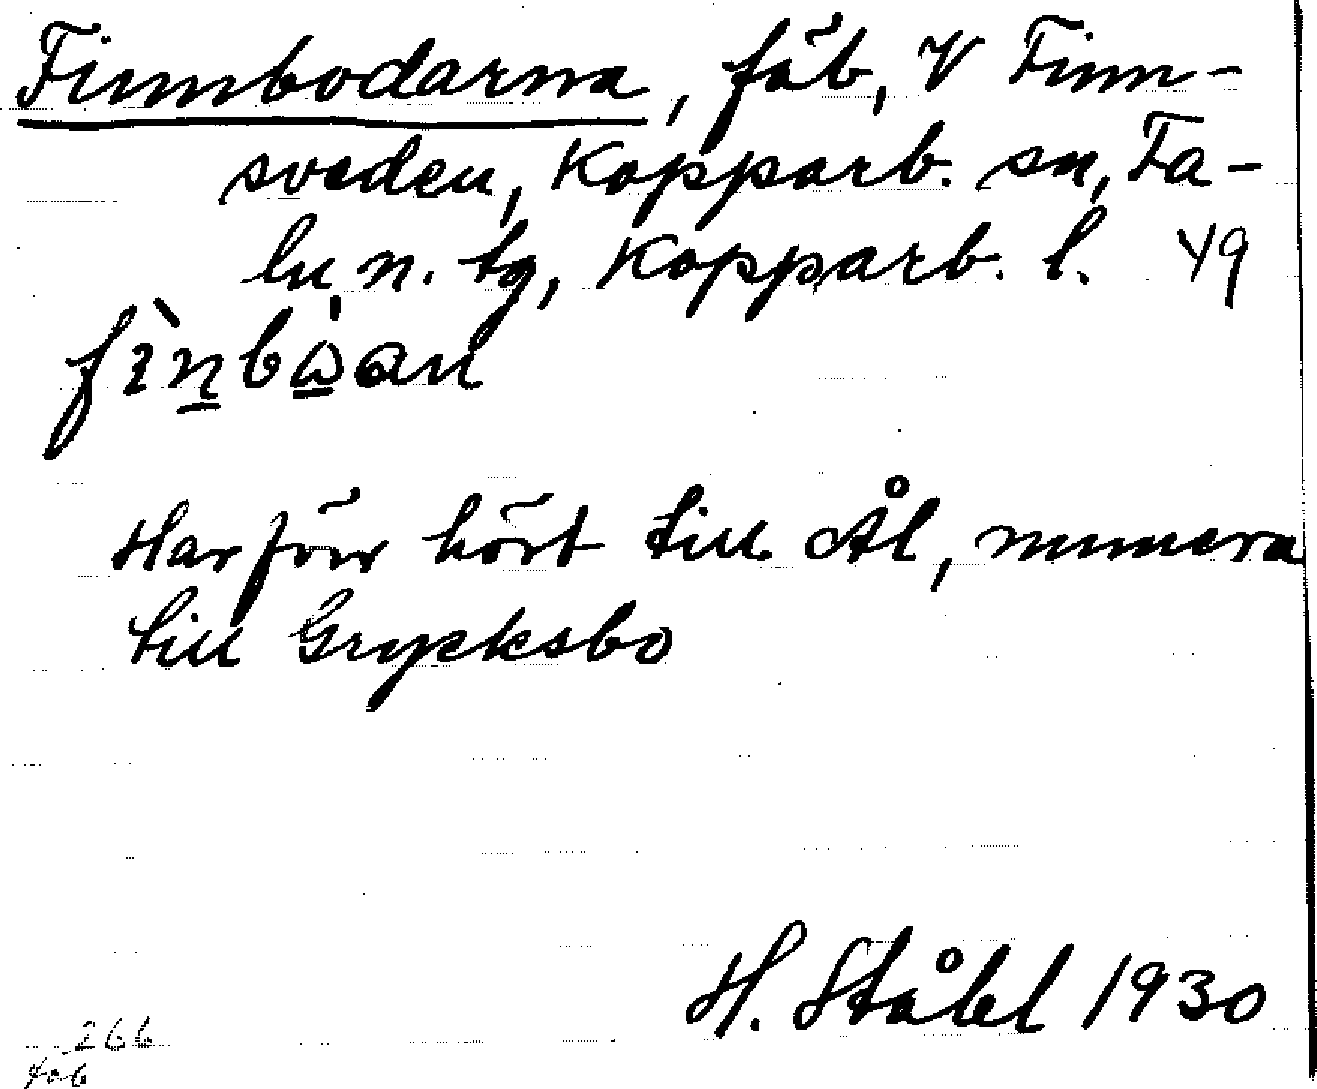 Finnbodarna, fäb, V Finn-
sveden, Kopparb. sn, Fa-
lu n. tg, Kopparb. l. 49
Har förr hört till Ål, numera
till Grycksbo
H. Ståhl 1930
266
fäb